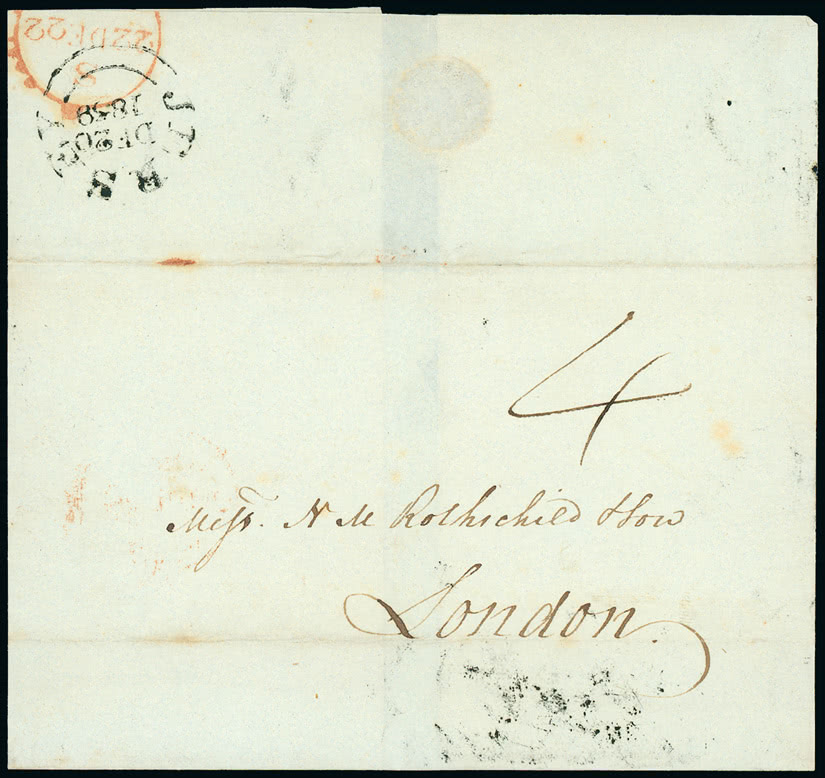 22 DE 22
S
JERSEY
DE 20
1839
4
Messrs. N M Rothschild & Son
London.